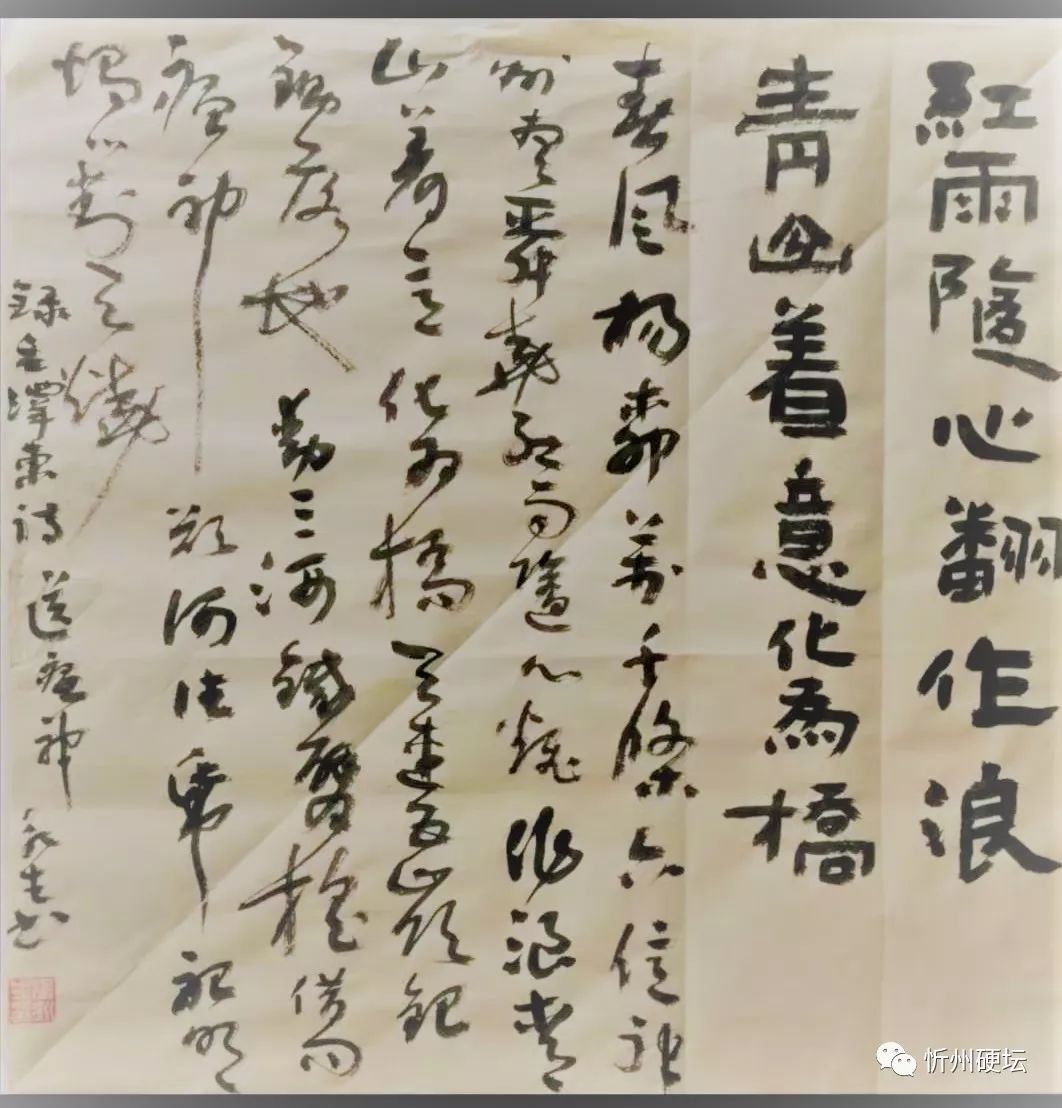 紅雨隨心翻作浪
青山着意化為橋
春风杨柳万千條六億神
州尽舜尧红雨隨心翻作浪青
山着意化为橋天連五岭銀
锄落地動三河鐵臂摇借问
瘟神欲何往帋船明
燭照天燒
録毛澤東诗送瘟神 书
忻州硬坛